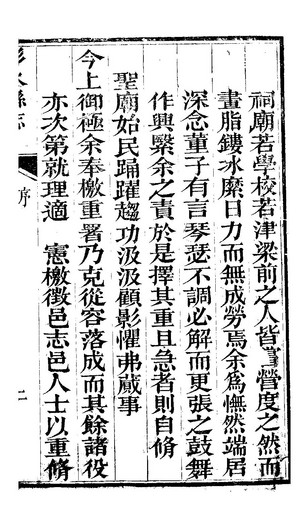 祠廟若學校若津梁前之人皆嘗營度之然而
畫脂鏤冰縻日力而無成勞焉余爲憮然端居
深念董子有言琴瑟不調必解而更張之鼓舞
作興繄余之責於是擇其重且急者則自脩
聖廟始民踊躍趨功汲汲顧影懼弗蕆事
今上御極余奉檄重署乃克從容落成而其餘諸役
亦次第就理適 憲檄徵邑志邑人士以重脩
水縣志
序
二